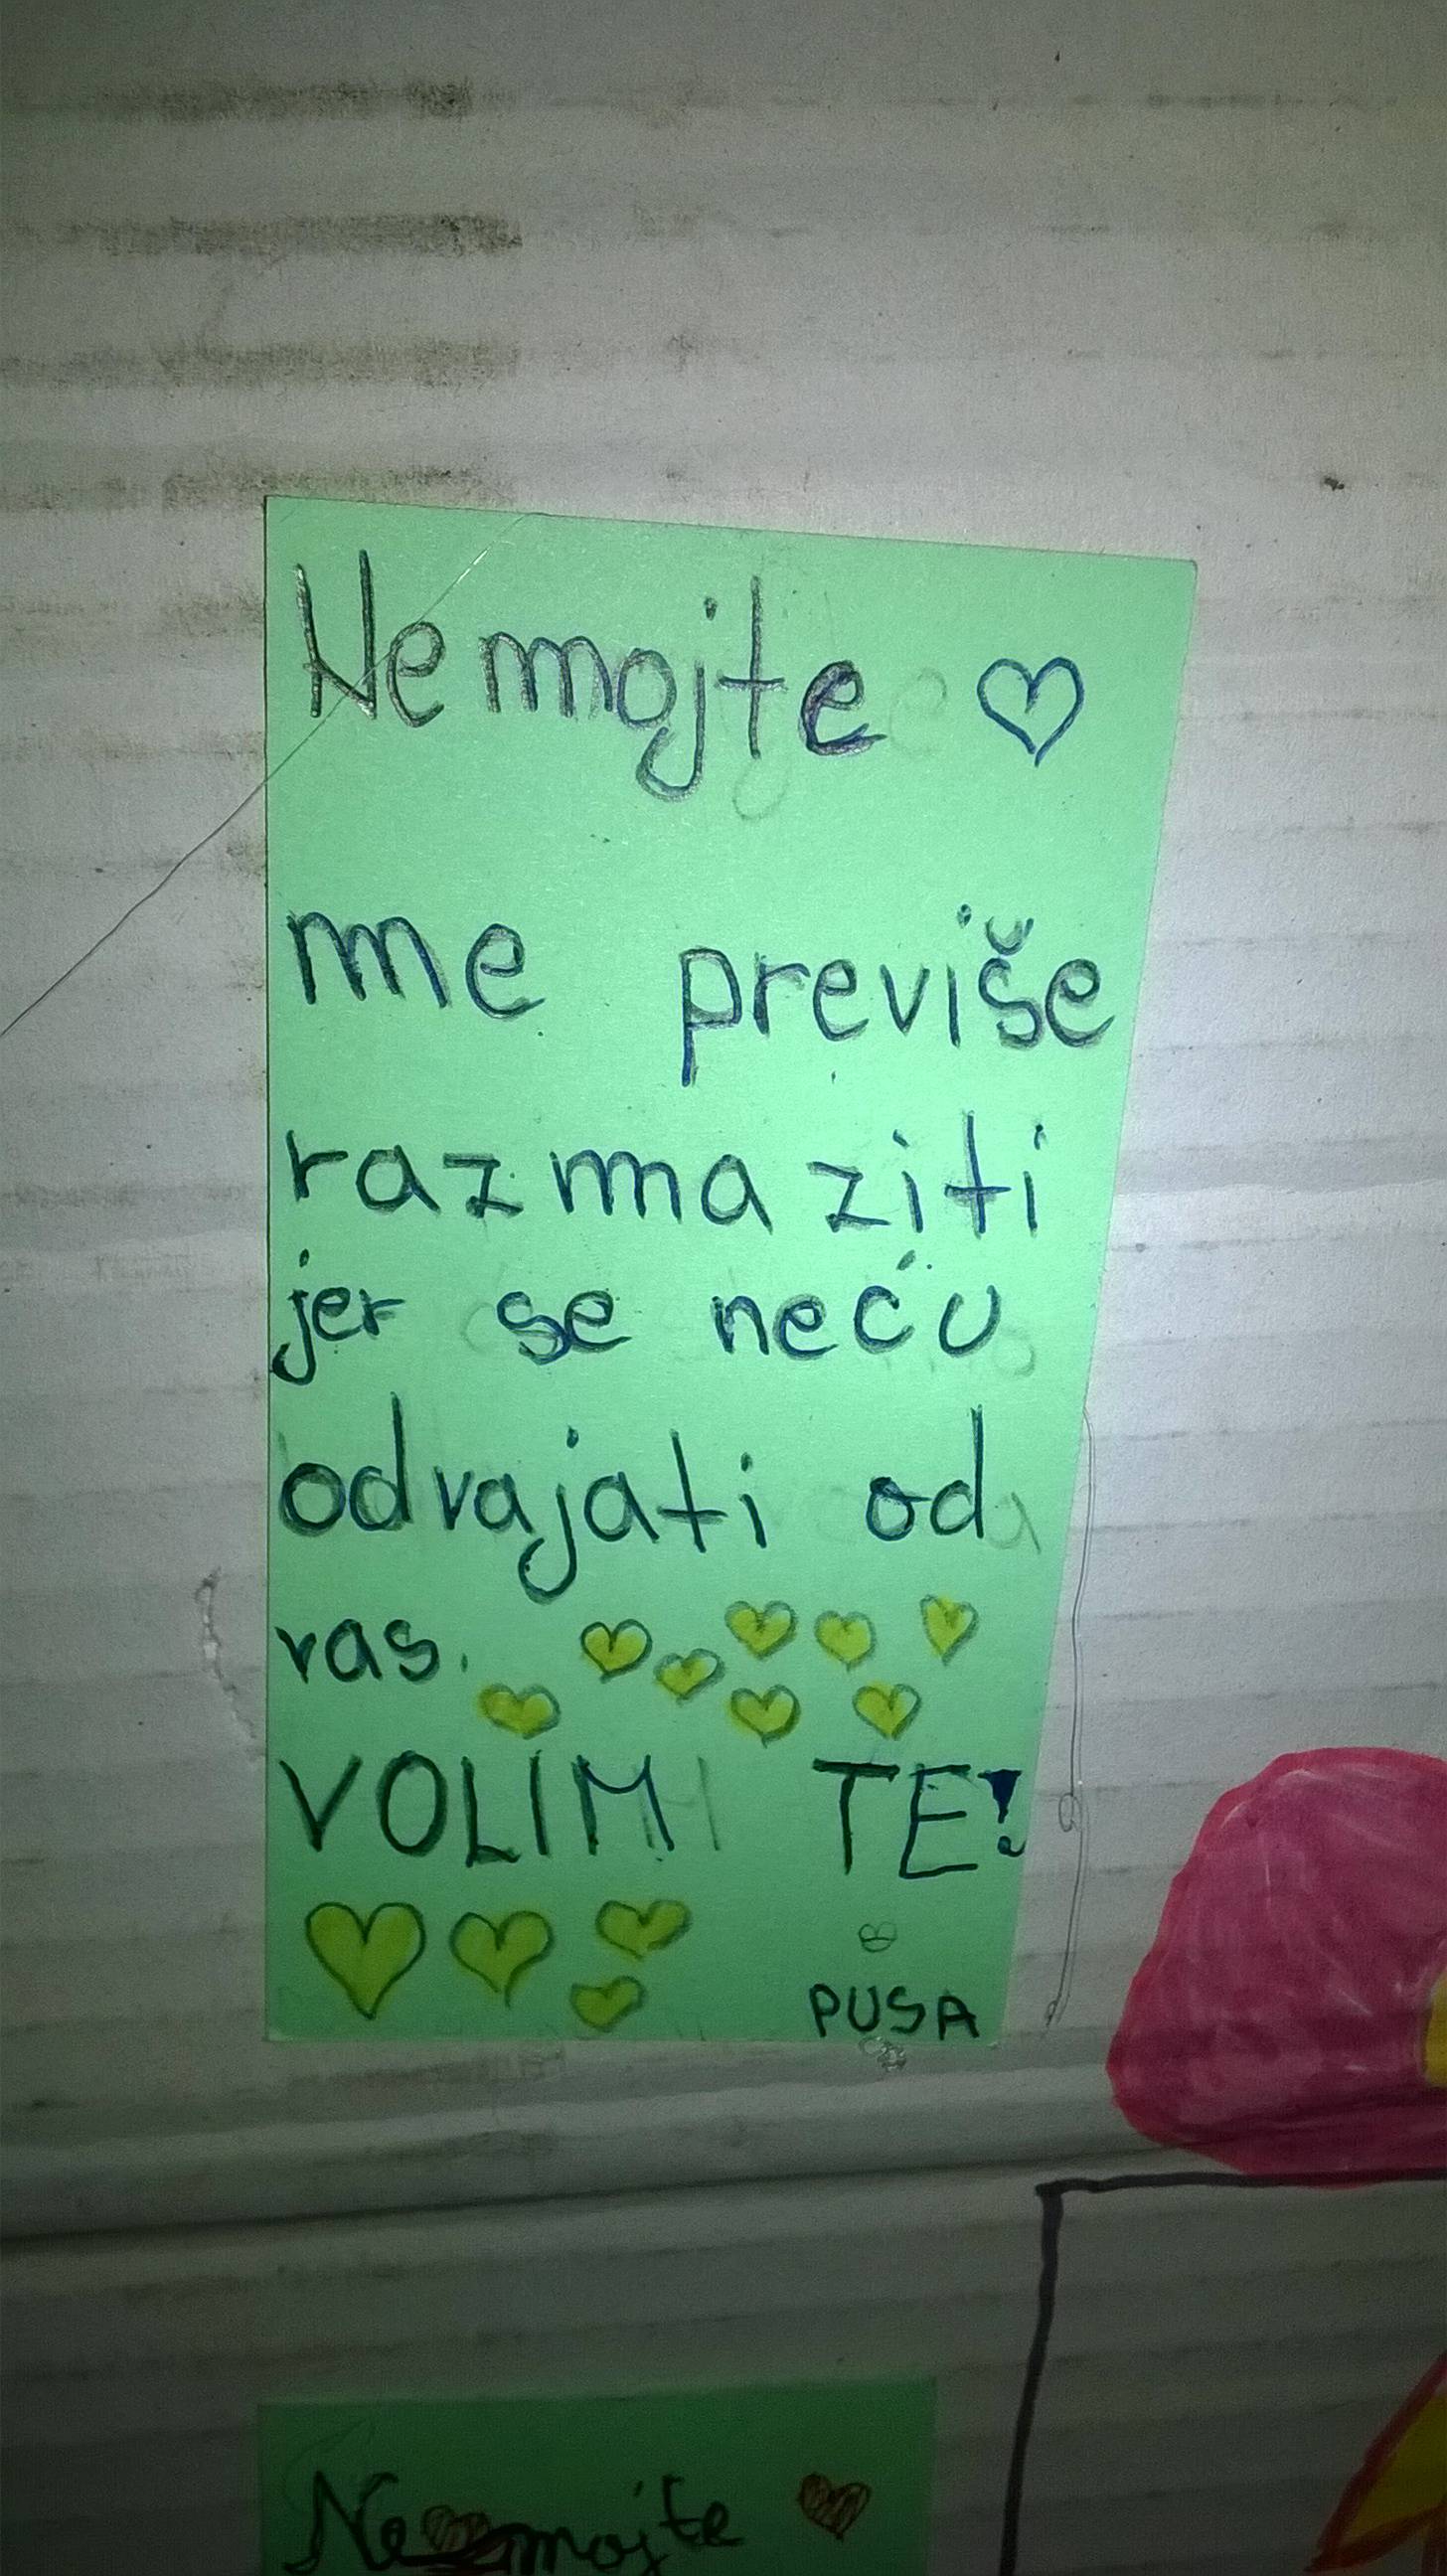 Nemojte
me previše
razmaziti
jer se neću
odvajati od
vas.
VOLIM TE!
PUSA
Nemojte